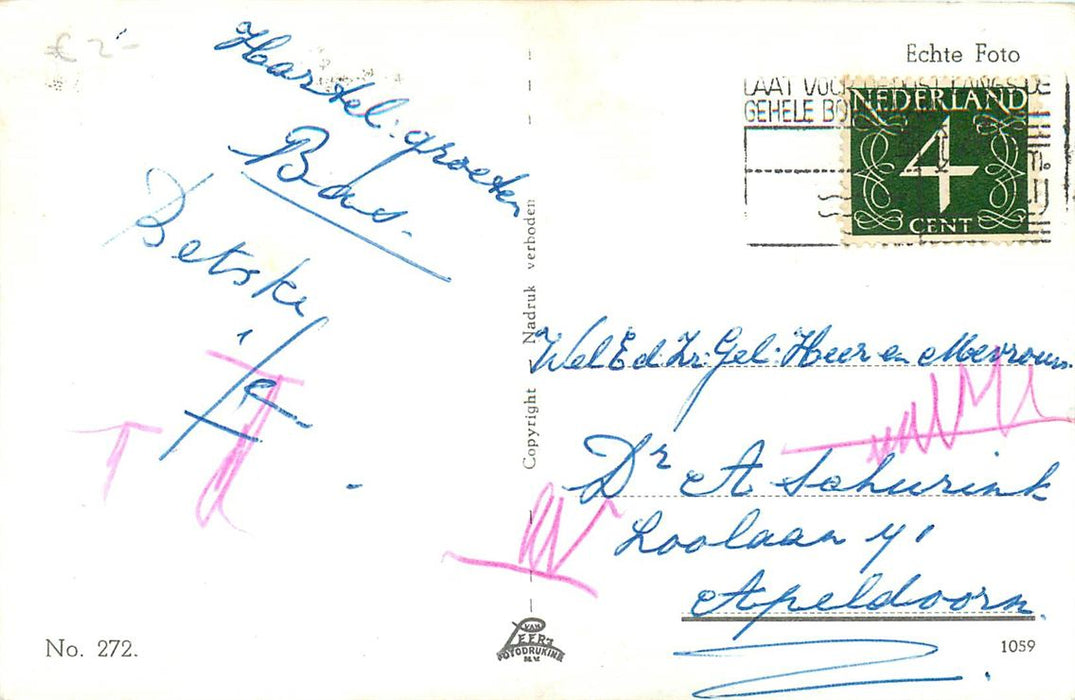 £ 2-
Hartel: groeten
Bas.
Betske
Echte Foto
LAAT VOOR
GEHELE
NEDERLAND
4
CENT
Copyright - Nadruk verboden
Wel Ed. Zr: Gel: Heer en Mevrouw
Dr A Schurink
Loolaan 41
Apeldoorn.
No. 272.
VAN
LEER'S
FOTODRUKIND
N.V.
1059